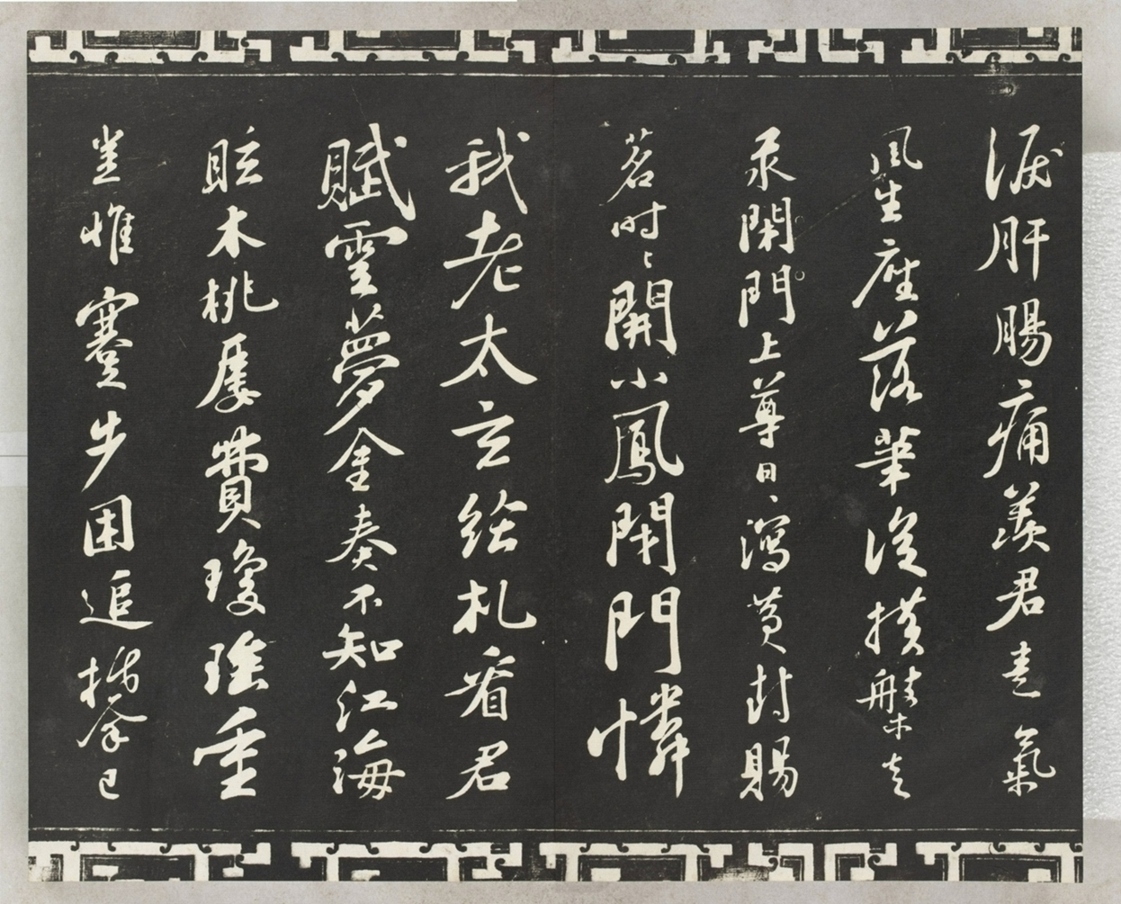 淚肝腸痛羨君意氣
風生座落筆從橫槃走
汞閑門上尊日〻瀉黃封賜
茗時〻開小鳳閉門憐
我老太玄給札看君
賦雲夢金奏不知江海
眩木桃屢費瓊瑤重
豈惟蹇步困追攀已